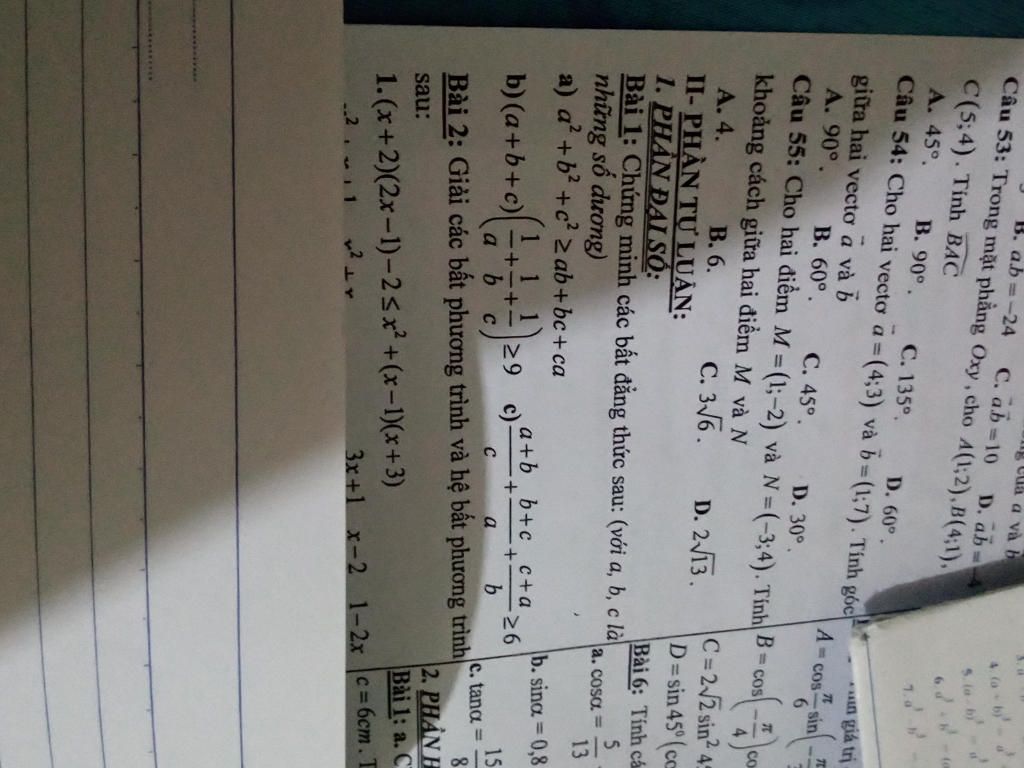 B. ab = −24 C. ab = 10 D. ab = −4
Câu 53: Trong mặt phẳng Oxy, cho A(1;2), B(4;1),
C(5;4). Tính BAC
A. 45°. B. 90°. C. 135°. D. 60°.
Câu 54: Cho hai vectơ a = (4;3) và b = (1;7). Tính góc
giữa hai vectơ a và b
A. 90°. B. 60°. C. 45°. D. 30°.
Câu 55: Cho hai điểm M = (1;−2) và N = (−3;4). Tính
khoảng cách giữa hai điểm M và N
A. 4. B. 6. C. 3√6. D. 2√13.
II- PHẦN TỰ LUẬN:
1. PHẦN ĐẠI SỐ:
Bài 1: Chứng minh các bất đẳng thức sau: (với a, b, c là
những số dương)
a) a² + b² + c² ≥ ab + bc + ca
b) (a + b + c)(1/a + 1/b + 1/c) ≥ 9 c) (a+b)/c + (b+c)/a + (c+a)/b ≥ 6
Bài 2: Giải các bất phương trình và hệ bất phương trình
sau:
1. (x + 2)(2x − 1) − 2 ≤ x² + (x − 1)(x + 3)
3x + 1 x − 2 1 − 2x
giá trị
A = cos π/6 sin(−π/
B = cos(−π/4) co
C = 2√2 sin² 4
D = sin 45° (co
Bài 6: Tính cá
a. cosα = 5/13
b. sinα = 0,8
c. tanα = 15/8
2. PHẦN H
Bài 1: a. C
c = 6cm. T